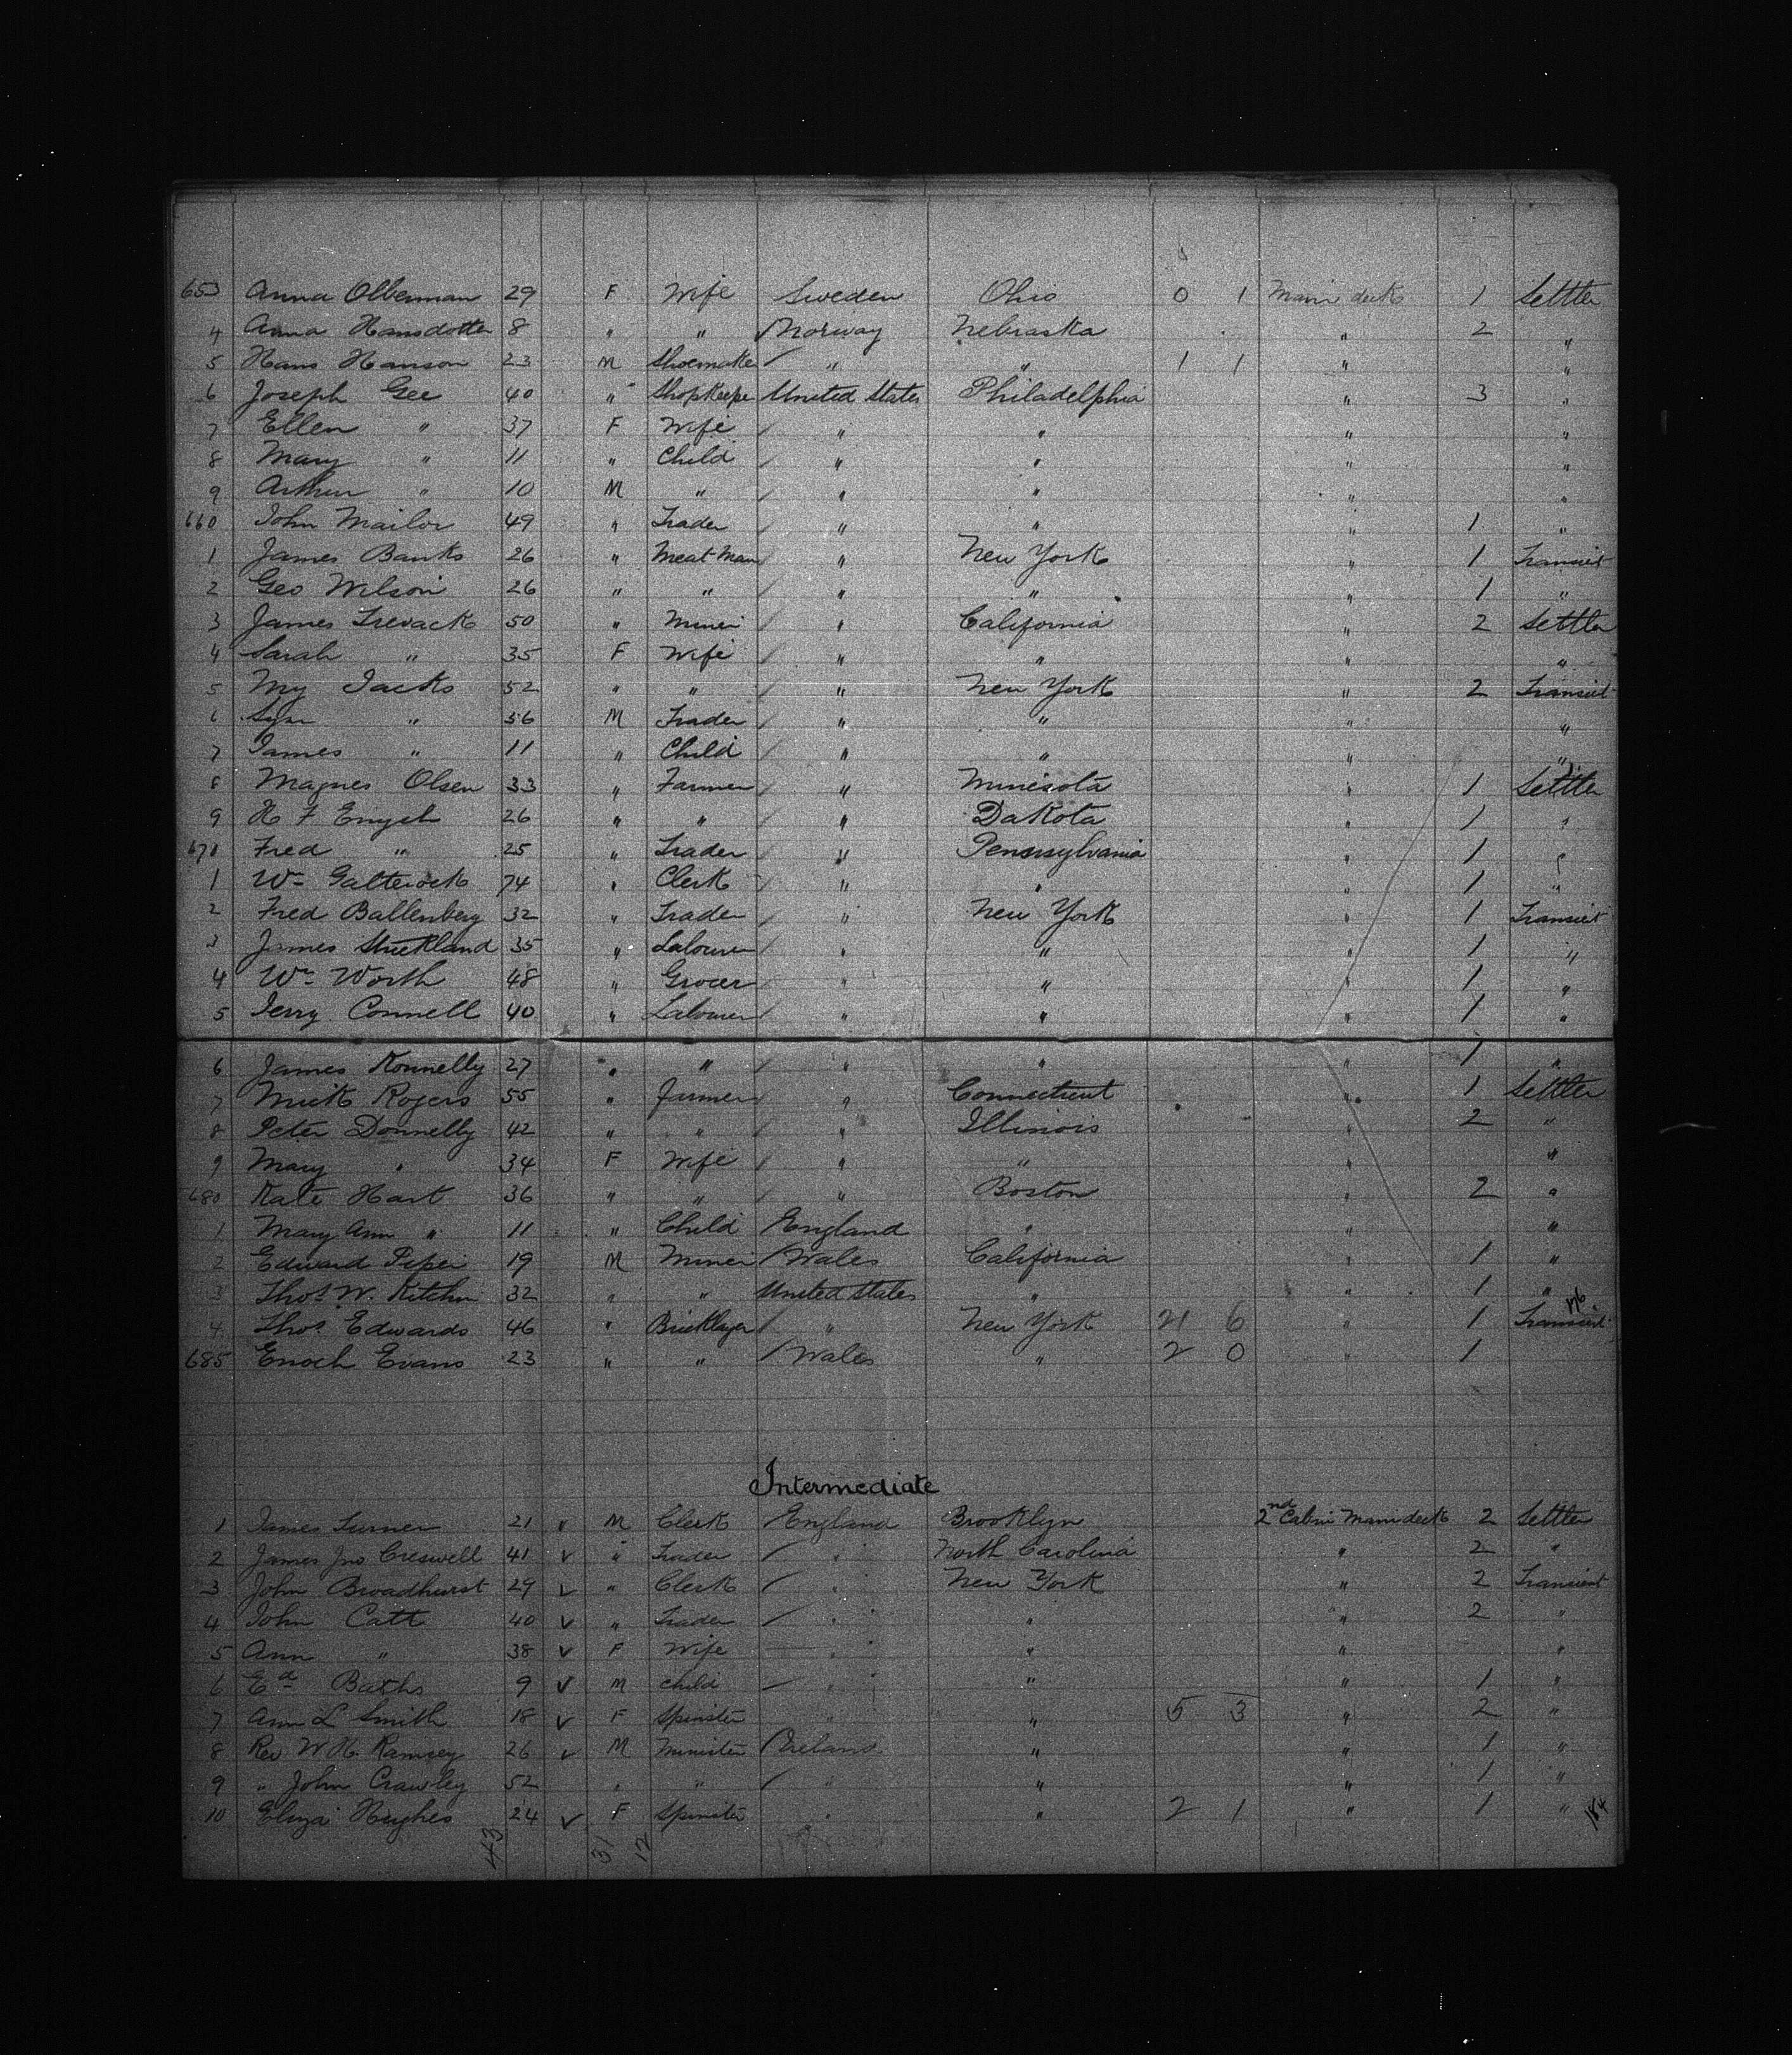 653 Anna Olberman 29 F Wife Sweden Ohio 0 1 Main deck 1 Settler
4 Anna Hansdotter 8 " " Norway Nebraska " 2 "
5 Hans Hanson 23 M Shoemaker " " 1 1 " "
6 Joseph Gee 40 " Shopkeeper United States Philadelphia " 3 "
7 Ellen " 37 F Wife " " " "
8 Mary " 11 " Child " " " "
9 Arthur " 10 M " " " " "
660 John Mailor 49 " Trader " " " 1 "
1 James Banks 26 " Meat Man " New York " 1 Transient
2 Geo Wilson 26 " " " " " 1 "
3 James Trevack 50 " Miner " California " 2 Settler
4 Sarah " 35 F Wife " " " "
5 My Jacks 52 " " " New York " 2 Transient
6 " 56 M Trader " " " "
7 James " 11 " Child " " " "
8 Magnes Olsen 33 " Farmer " Minesota " 1 Settler
9 H F Engel 26 " " " Dakota " 1 "
670 Fred " 25 " Trader " Pennsylvania " 1 "
1 Wm 74 " Clerk " " " 1 "
2 Fred Ballenberg 32 " Trader " New York " 1 Transient
3 James Strickland 35 " Labourer " " " 1 "
4 Wm Worth 48 " Grocer " " " 1 "
5 Jerry Connell 40 " Labourer " " " 1 "
6 James Konnelly 27 " " " " " 1 "
7 Mick Rogers 55 " Farmer " Connecticut " 1 Settler
8 Peter Donnelly 42 " " " Illinois " 2 "
9 Mary " 34 F Wife " " " "
680 Kate Hart 36 " " " Boston " 2 "
1 Mary Ann " 11 " Child England " " "
2 Edward Piper 19 M Miner Wales California " 1 "
3 Thos W. Kitchin 32 " " United States " " 1 "
4 Thos Edwards 46 " Bricklayer " New York 21 6 " 1 Transient
685 Enoch Evans 23 " " Wales " 2 0 " 1
Intermediate
1 James Turner 21 M Clerk England Brooklyn 2nd Cabin Main deck 2 Settler
2 James Jno Creswell 41 " Trader " North Carolina " 2 "
3 John Broadhurst 29 " Clerk " New York " 2 Transient
4 John Catt 40 " Trader " " " 2 "
5 Ann " 38 F Wife " " " "
6 Ed Baths 9 M Child " " " 1 "
7 Ann L Smith 18 F Spinster " " 5 3 " 2 "
8 Rev W H. Ramsey 26 M Minister Ireland " " 1 "
9 " John Crawley 52 " " " " " 1 "
10 Eliza Hughes 24 F Spinster " " 2 1 " 1 "
43 31 12